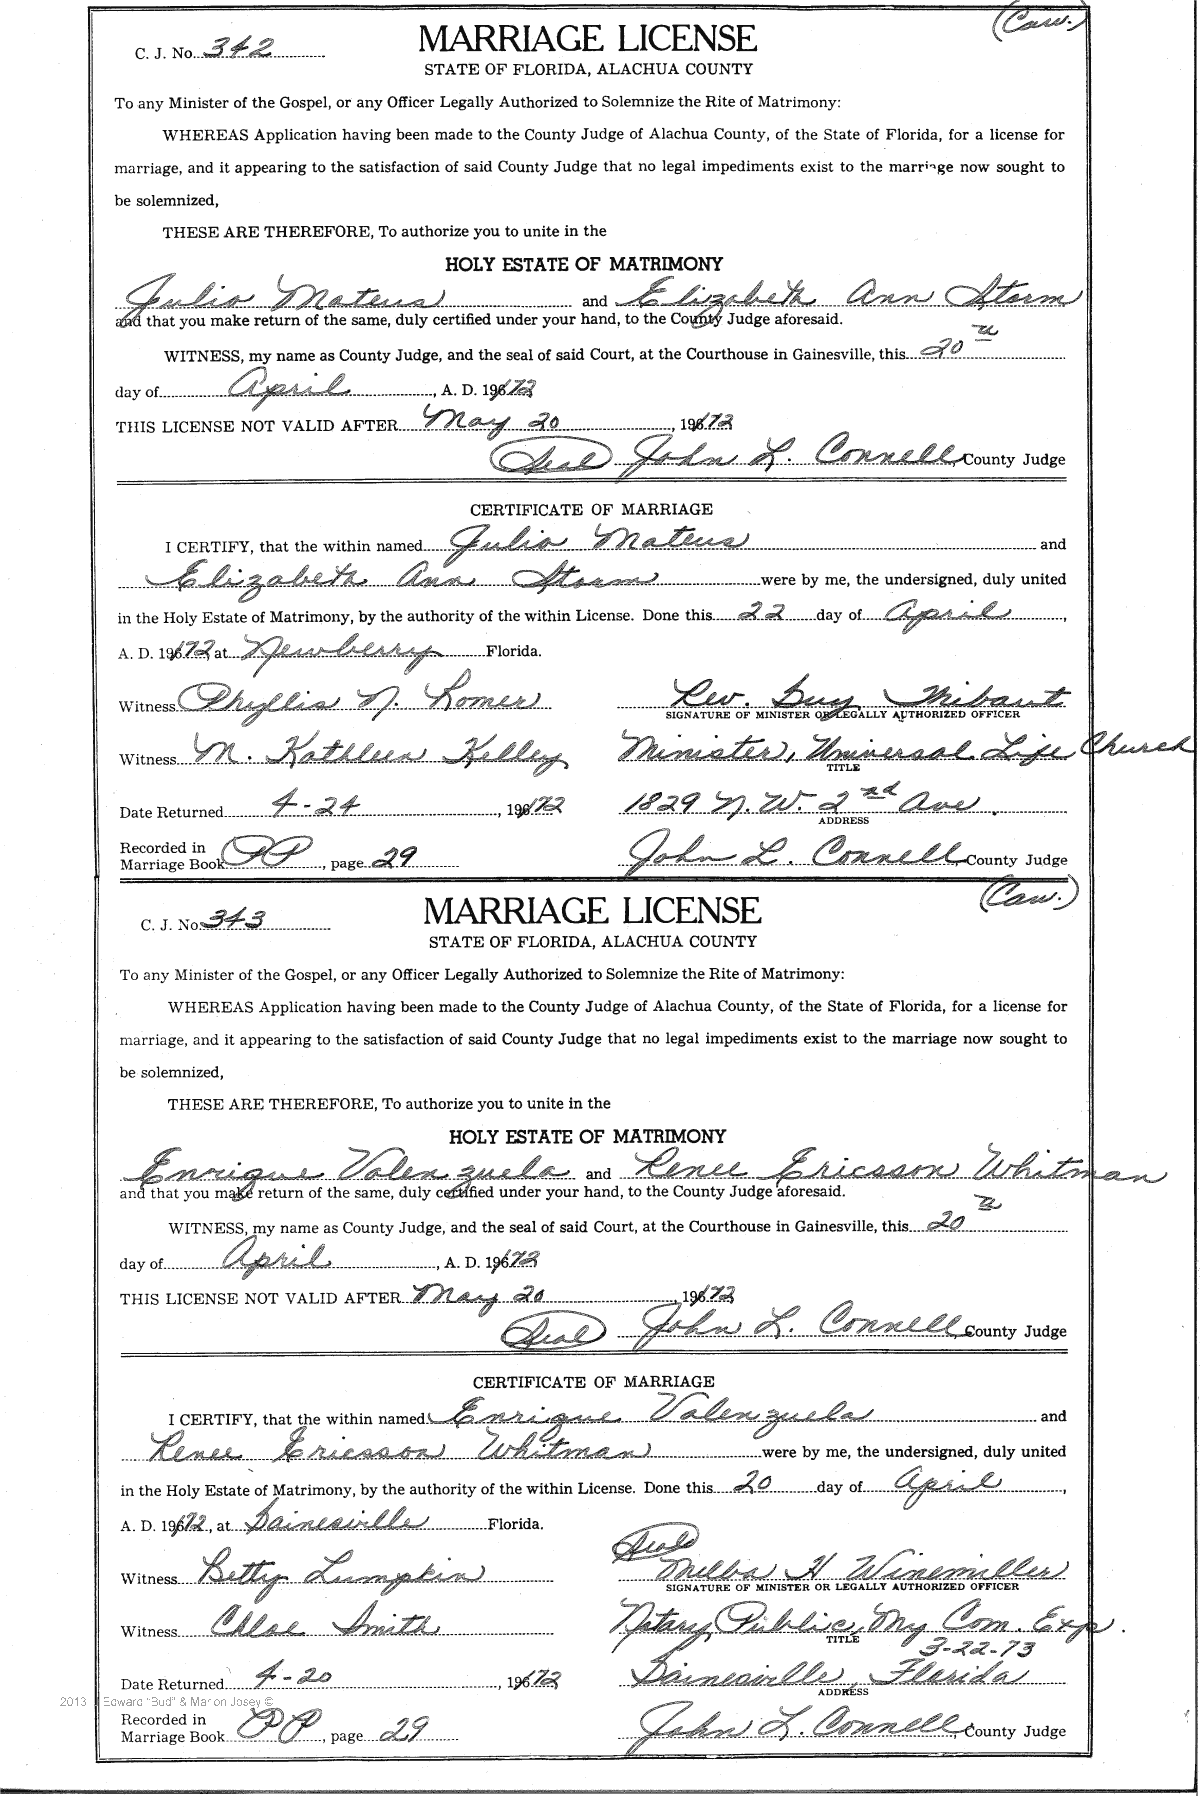 (Cauc.)
C. J. No. 342 MARRIAGE LICENSE
STATE OF FLORIDA, ALACHUA COUNTY
To any Minister of the Gospel, or any Officer Legally Authorized to Solemnize the Rite of Matrimony:
WHEREAS Application having been made to the County Judge of Alachua County, of the State of Florida, for a license for
marriage, and it appearing to the satisfaction of said County Judge that no legal impediments exist to the marriage now sought to
be solemnized,
THESE ARE THEREFORE, To authorize you to unite in the
HOLY ESTATE OF MATRIMONY
Julio Mateus and Elizabeth Ann Storm
and that you make return of the same, duly certified under your hand, to the County Judge aforesaid.
WITNESS, my name as County Judge, and the seal of said Court, at the Courthouse in Gainesville, this 20th
day of April, A. D. 1972
THIS LICENSE NOT VALID AFTER May 20, 1972
(Seal) John L. Connell, County Judge
CERTIFICATE OF MARRIAGE
I CERTIFY, that the within named Julio Mateus and
Elizabeth Ann Storm were by me, the undersigned, duly united
in the Holy Estate of Matrimony, by the authority of the within License. Done this 22 day of April,
A. D. 1972, at Newberry Florida.
Witness Phyllis N. Romer Rev. Guy Thibaut
SIGNATURE OF MINISTER OR LEGALLY AUTHORIZED OFFICER
Witness M. Kathleen Kelley Minister, Universal Life Church
TITLE
Date Returned 4-24, 1972 1829 N.W. 2nd Ave.
ADDRESS
Recorded in
Marriage Book PP, page 29 John L. Connell, County Judge
C. J. No. 343 MARRIAGE LICENSE
STATE OF FLORIDA, ALACHUA COUNTY
To any Minister of the Gospel, or any Officer Legally Authorized to Solemnize the Rite of Matrimony:
WHEREAS Application having been made to the County Judge of Alachua County, of the State of Florida, for a license for
marriage, and it appearing to the satisfaction of said County Judge that no legal impediments exist to the marriage now sought to
be solemnized,
THESE ARE THEREFORE, To authorize you to unite in the
HOLY ESTATE OF MATRIMONY
Enrique Valenzuela and Renee Ericsson Whitman
and that you make return of the same, duly certified under your hand, to the County Judge aforesaid.
WITNESS, my name as County Judge, and the seal of said Court, at the Courthouse in Gainesville, this 20th
day of April, A. D. 1972
THIS LICENSE NOT VALID AFTER May 20, 1972
(Seal) John L. Connell, County Judge
CERTIFICATE OF MARRIAGE
I CERTIFY, that the within named Enrique Valenzuela and
Renee Ericsson Whitman were by me, the undersigned, duly united
in the Holy Estate of Matrimony, by the authority of the within License. Done this 20 day of April,
A. D. 1972, at Gainesville Florida.
(Seal)
Witness Betty Lumpkin Melba H Winemiller
SIGNATURE OF MINISTER OR LEGALLY AUTHORIZED OFFICER
Witness Chloe Smith Notary Public, My Com. Exp.
TITLE 3-22-73
Date Returned 4-20, 1972 Gainesville, Florida
ADDRESS
2013 Edward "Bud" & Marion Josey ©
Recorded in
Marriage Book PP, page 29 John L. Connell, County Judge